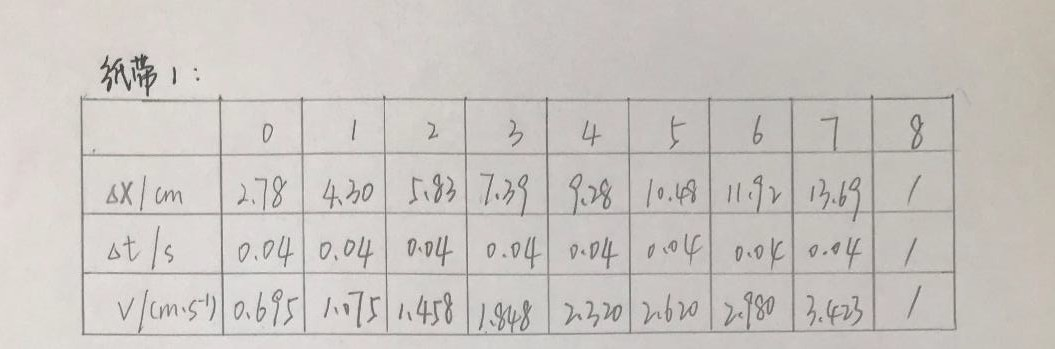 纸带1:
0 1 2 3 4 5 6 7 8
Δx/cm 2.78 4.30 5.83 7.39 9.28 10.48 11.92 13.69 /
Δt/s 0.04 0.04 0.04 0.04 0.04 0.04 0.04 0.04 /
V/(cm·s⁻¹) 0.695 1.075 1.458 1.848 2.320 2.620 2.980 3.423 /